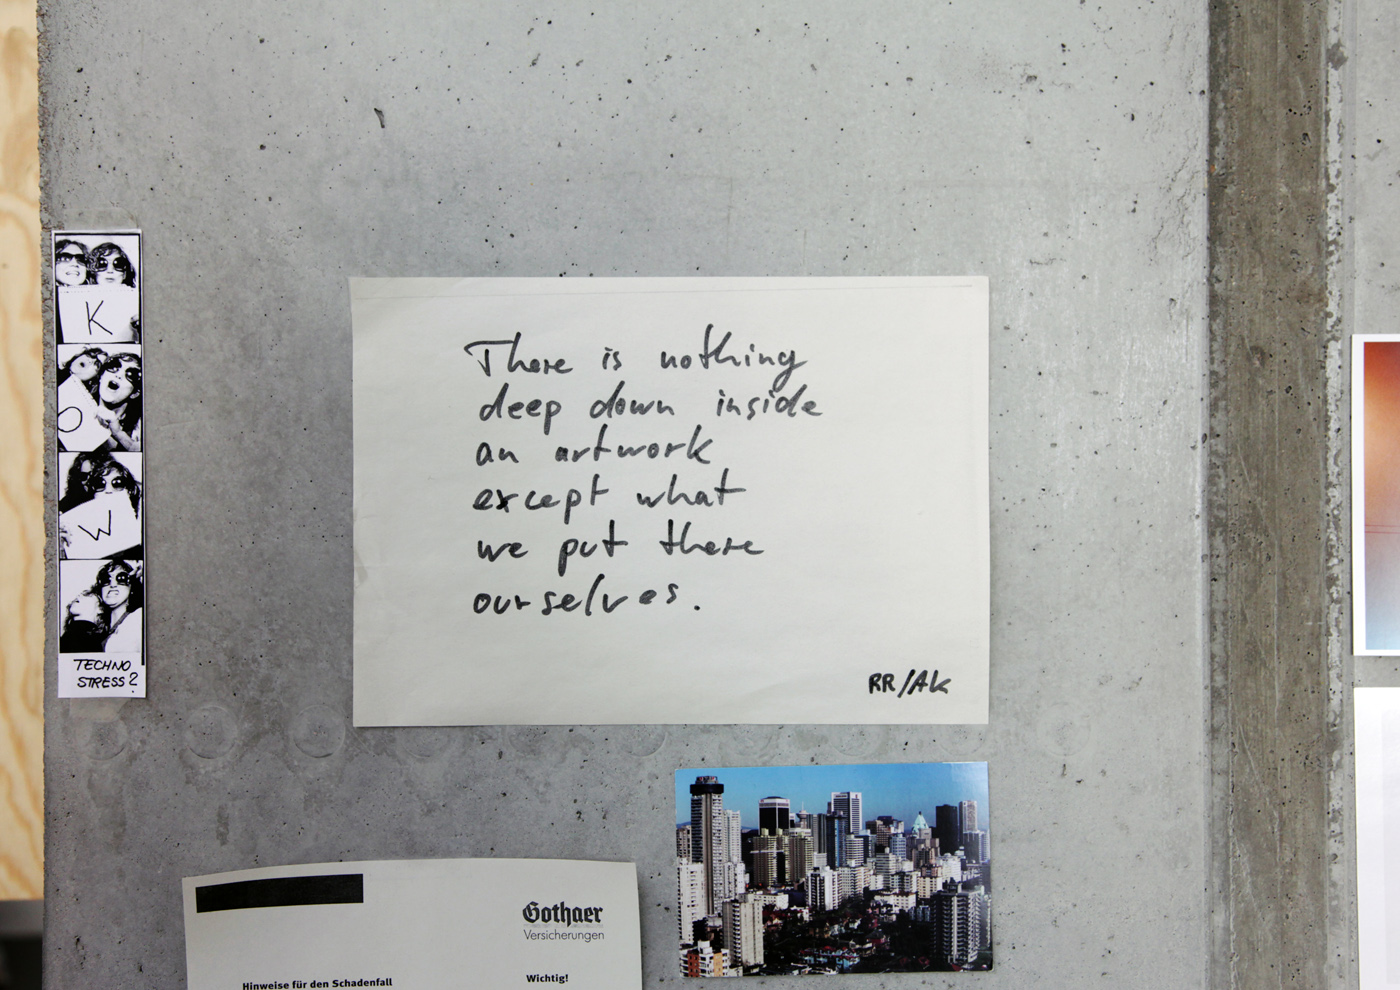 K
O
W
TECHNO
STRESS?
There is nothing
deep down inside
an artwork
except what
we put there
ourselves.
RR/AK
Gothaer
Versicherungen
Hinweise für den Schadenfall
Wichtig!